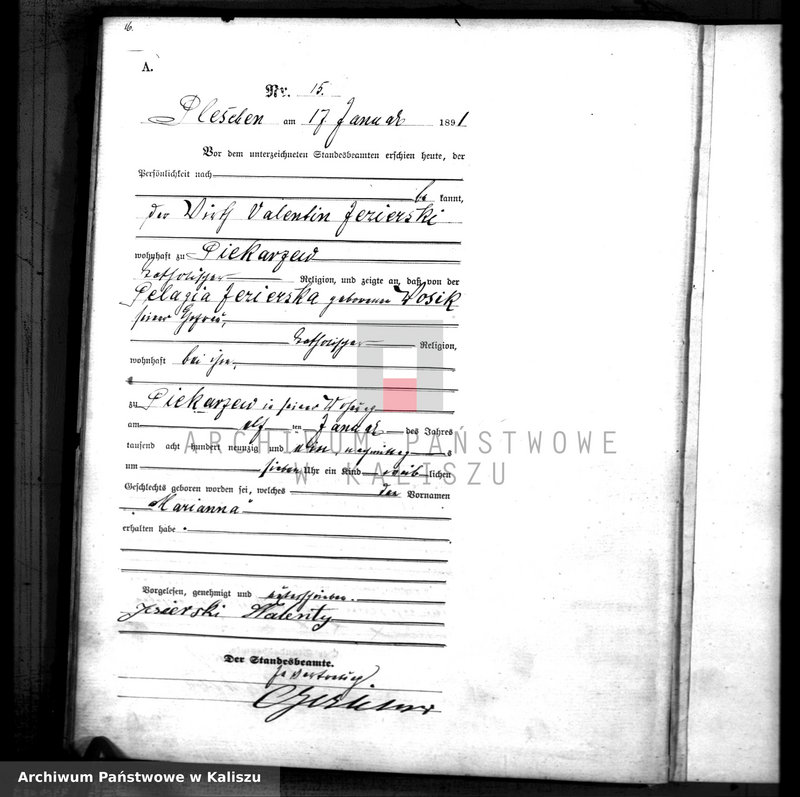 16.
A.
Nr. 15.
Pleschen am 17 Januar 1891
Vor dem unterzeichneten Standesbeamten erschien heute, der
Persönlichkeit nach
be kannt,
der Wirth Valentin Jezierski
wohnhaft zu Piekarzew
katholischer Religion, und zeigte an, daß von der
Pelagia Jezierska geborenen Wosik
seiner Ehefrau,
katholischer Religion,
wohnhaft bei ihm,
zu Piekarzew in seiner Wohnung
am elf ten Januar des Jahres
tausend acht hundert neunzig und ein nachmittag s
um sieben Uhr ein Kind weib lichen
Geschlechts geboren worden sei, welches den Vornamen
"Marianna"
erhalten habe.
Vorgelesen, genehmigt und unterschrieben.
Jezierski Walenty
Der Standesbeamte.
In Vertretung
ARCHIWUM PAŃSTWOWE
W KALISZU
Archiwum Państwowe w Kaliszu